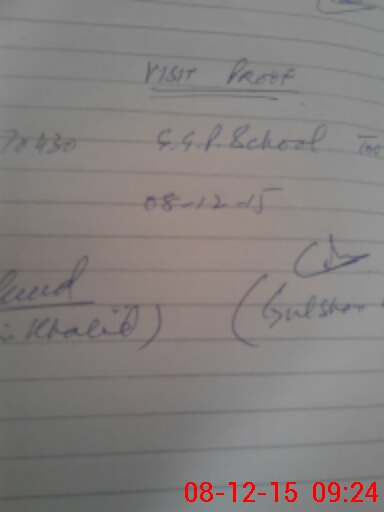 VISIT PROOF
70430 G.G.P.School
08-12-15
Khalid) (Gulshan
08-12-15 09:24